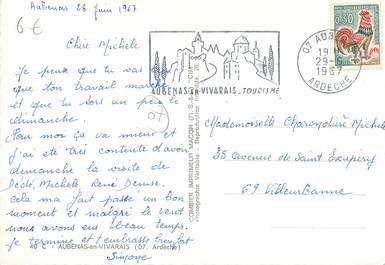 Aubenas 28 juin 1967
6 €
Chère Michèle
Je pense que tu vas bien
que ton travail marche
et que tu sors un peu le
dimanche.
Pour moi ça va mieux et
j'ai été très contente d'avoir
dimanche la visite de
Dédé, Michèle, René Denise.
cela m'a fait passé un bon
moment et malgré le vent
nous avons eu beau temps.
Je termine et t'embrasse bien fort
Simone
40 C - AUBENAS-en-VIVARAIS (07. Ardèche)
07
COMBIER IMPRIMEUR MACON (71. S.-&-L.) "CIM"
Photographie Véritable - Reproduction Interdite
AUBENAS-EN-VIVARAIS. TOURISME
07 AUBENAS
19
29-
1967
ARDECHE
0,30
Mademoiselle Michèle
35 Avenue de Saint Exupéry
69 Villeurbanne